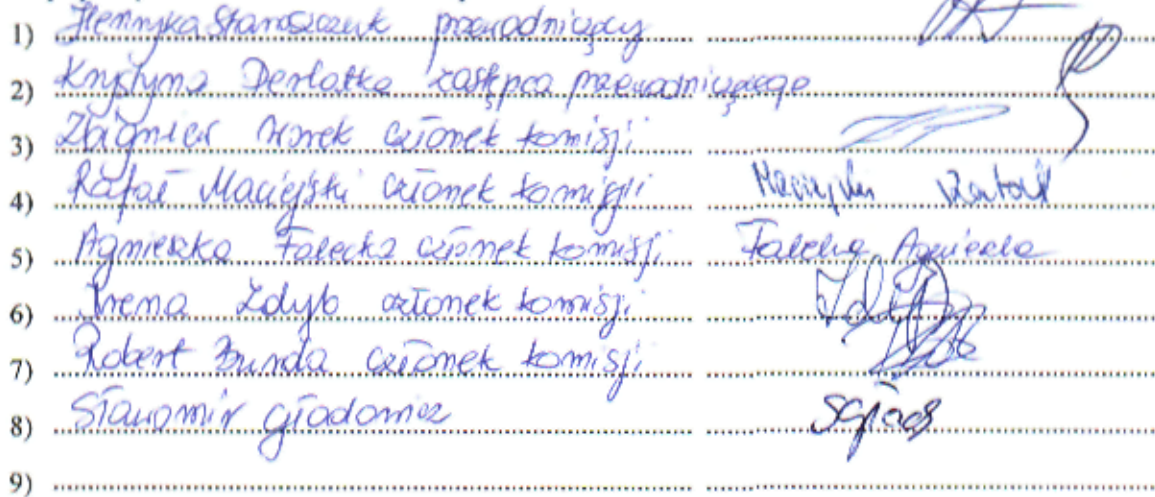 1) Henryka Staroszczuk przewodniczący
2) Krystyna Derlatka zastępca przewodniczącego
3) Zbigniew członek komisji
4) Rafał Maciejski członek komisji Maciejski Rafał
5) Agnieszka Falecka członek komisji Falecka Agnieszka
6) Irena Zdyb członek komisji
7) Robert Bunda członek komisji
8) Sławomir
9)